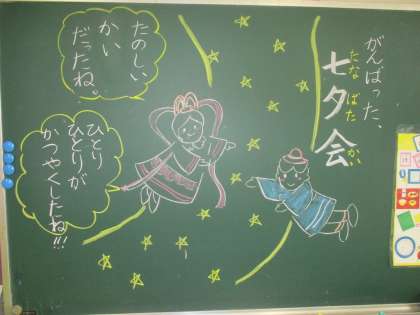 がんばった、
七夕会
たなばたかい
たのしい
かい
だったね。
ひとり
ひとりが
かつやくしたね!!!